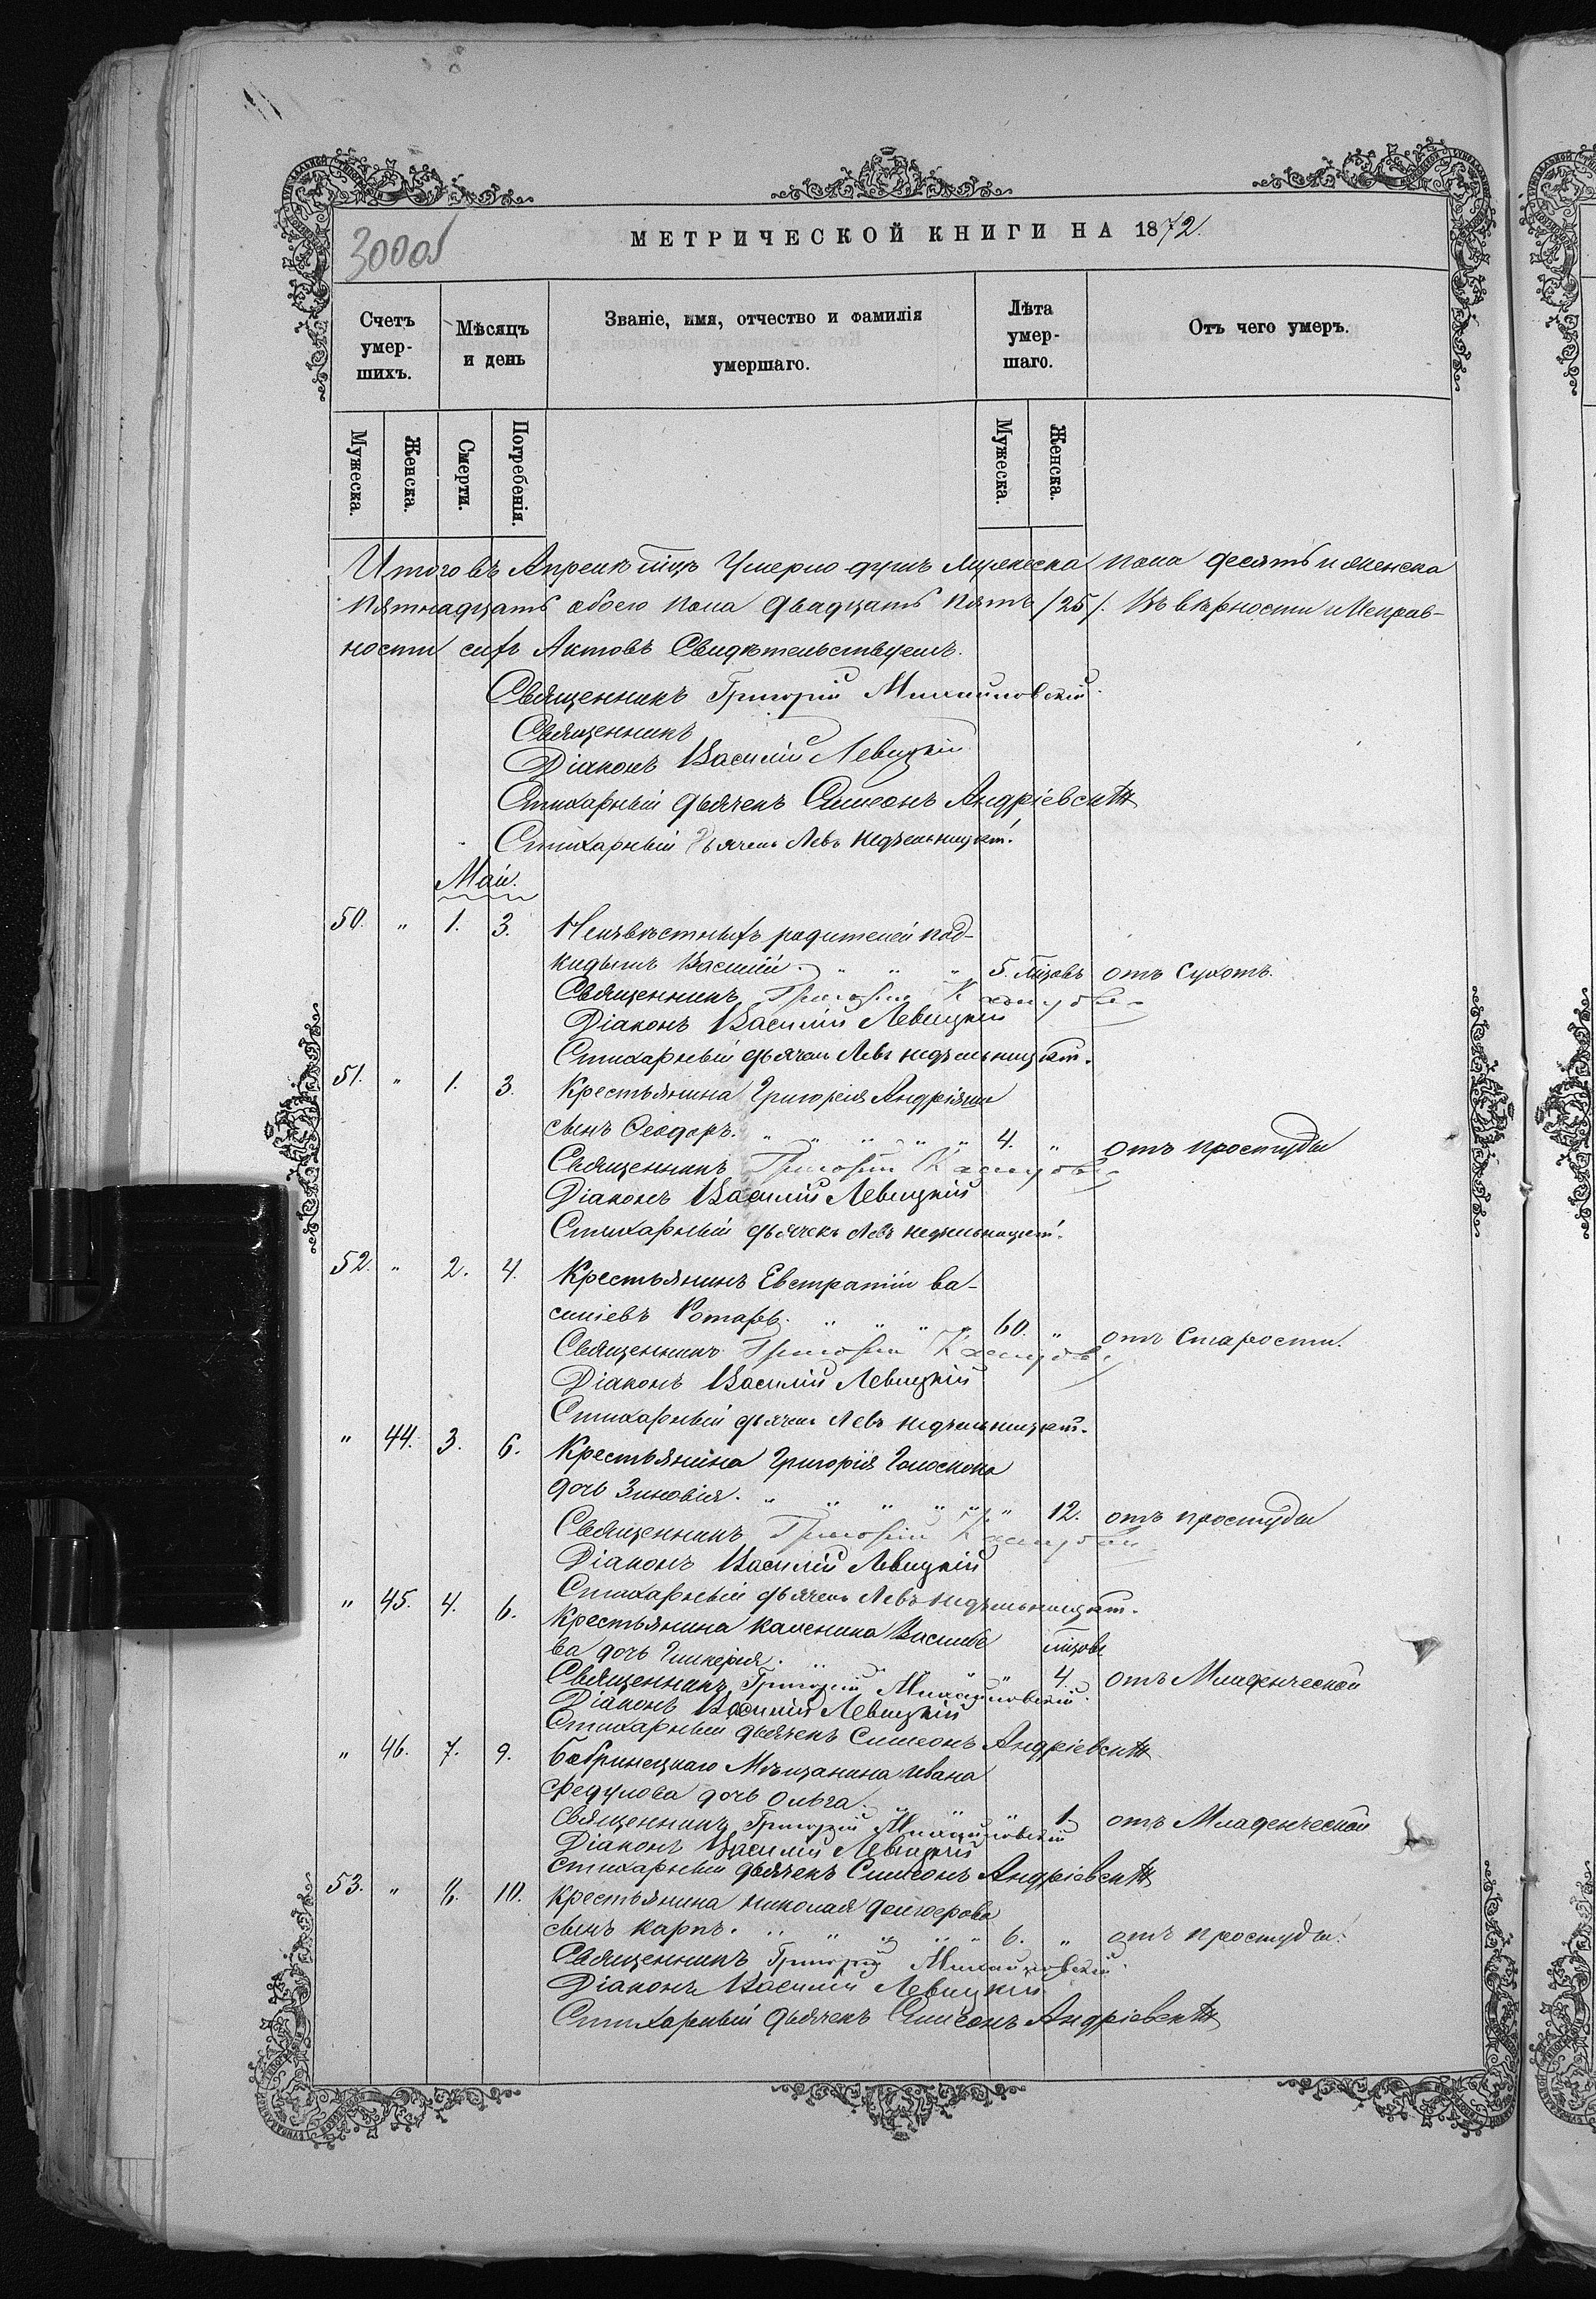 МЕТРИЧЕСКОЙ КНИГИ НА 1872.
Счетъ умер-шихъ.
Мѣсяцъ и день
Званіе, имя, отчество и фамилія умершаго.
Лѣта умер-шаго.
Отъ чего умеръ.
Мужеска.
Женска.
Смерти.
Погребенія.
Мужеска.
Женска.
Итого въ Апрелѣ мцѣ Умерло душъ мужеска пола десять и женска
пятнадцать обоего пола двадцать пять /25/. Въ вѣрности и Исправ-
ности сихъ Актовъ Свидѣтельствуемъ.
Священникъ Григорій Михайловскій.
Священникъ
Діаконъ Василій Левицкій
Стихарный дьячекъ Симеонъ Андріевскій
Стихарный дьячекъ Левъ Недѣльницкій.
Май.
50. " 1. 3. Неизвѣстныхъ родителей под-
кидышъ Василій. " " " 5. мцовъ отъ Сухотъ.
Священникъ Григорій
Діаконъ Василій Левицкій
Стихарный дьячекъ Левъ Недѣльницкій.
51. " 1. 3. Крестьянина Григорія Андріяша
сынъ Ѳеодоръ. " " " " " 4. " отъ простуды
Священникъ Григорій
Діаконъ Василій Левицкій
Стихарный дьячекъ Левъ Недѣльницкій.
52. " 2. 4. Крестьянинъ Евстратій Ва-
силіевъ Ротарь. " " " " 60. " отъ Старости.
Священникъ Григорій
Діаконъ Василій Левицкій
Стихарный дьячекъ Левъ Недѣльницкій.
" 44. 3. 6. Крестьянина Григорія Голоскока
дочь Зиновія. " " " " " " 12. отъ простуды
Священникъ Григорій
Діаконъ Василій Левицкій
Стихарный дьячекъ Левъ Недѣльницкій.
" 45. 4. 6. Крестьянина Каленика Василье мцовъ
ва дочь Гликерія. " " " 4. отъ Младенческой
Священникъ Григорій Михайловскій.
Діаконъ Василій Левицкій
Стихарный дьячекъ Симеонъ Андріевскій
" 46. 7. 9. Бобринецкаго Мѣщанина Ивана
Федулова дочь Ольга. " " " 1. отъ Младенческой
Священникъ Григорій Михайловскій
Діаконъ Василій Левицкій
Стихарный дьячекъ Симеонъ Андріевскій
53. " 10. Крестьянина Николая
сынъ Карпъ. " " " " " 6. " отъ простуды.
Священникъ Григорій Михайловскій.
Діаконъ Василій Левицкій
Стихарный дьячекъ Симеонъ Андріевскій